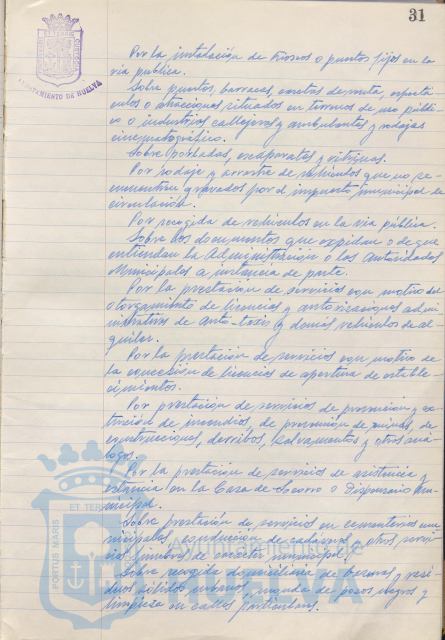 31
AYUNTAMIENTO DE HUELVA
Por la instalación de Kioscos o puntos fijos en la
vía pública.
Sobre puntos, barracas, casetas de venta, espectá-
culos o atracciones situados en terrenos de uso públi-
co o industrias callejeras y ambulantes y rodajes
cinematográfico.
Sobre portadas, escaparates y vitrinas.
Por rodaje y arrastre de vehículos que no se
encuentren gravados por el impuesto municipal de
circulación.
Por recogida de vehículos en la vía pública.
Sobre los documentos que expidan o de que
entiendan la Administración o las Autoridades
Municipales a instancia de parte.
Por la prestación de servicios con motivo del
otorgamiento de licencias y autorizaciones admi-
nistrativas de Auto-taxis y demás vehículos de al-
quiler.
Por la prestación de servicios con motivo de
la concesión de licencias de apertura de estable-
cimientos.
Por prestación de servicios de prevención y ex-
tinción de incendios, de prevención de ruinas, de
construcciones, derribos, salvamentos y otros aná-
logos.
Por la prestación de servicios de asistencia y
estancia en la Casa de Socorro o Dispensario Mu-
nicipal.
Sobre prestación de servicios en cementerios mu-
nicipales, conducción de cadáveres y otros servi-
cios fúnebres de carácter municipal.
Sobre recogida domiciliaria de basuras y resi-
duos sólidos urbanos, monda de pozos negros y
limpieza en calles particulares.
PORTUS MARIS
ET TERR
Ayuntamiento de
HUELVA